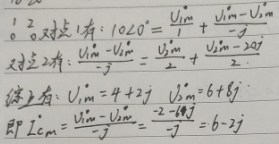 1 2
0 0 对点1有: 10∠0° = U̇₁ₘ/1 + (U̇₁ₘ-U̇₂ₘ)/-j
对点2有: (U̇₁ₘ-U̇₂ₘ)/-j = U̇₂ₘ/2 + (U̇₂ₘ-20j)/2
综上有: U̇₁ₘ = 4+2j U̇₂ₘ = 6+8j
即 İcm = (U̇₁ₘ-U̇₂ₘ)/-j = (-2-6j)/-j = 6-2j